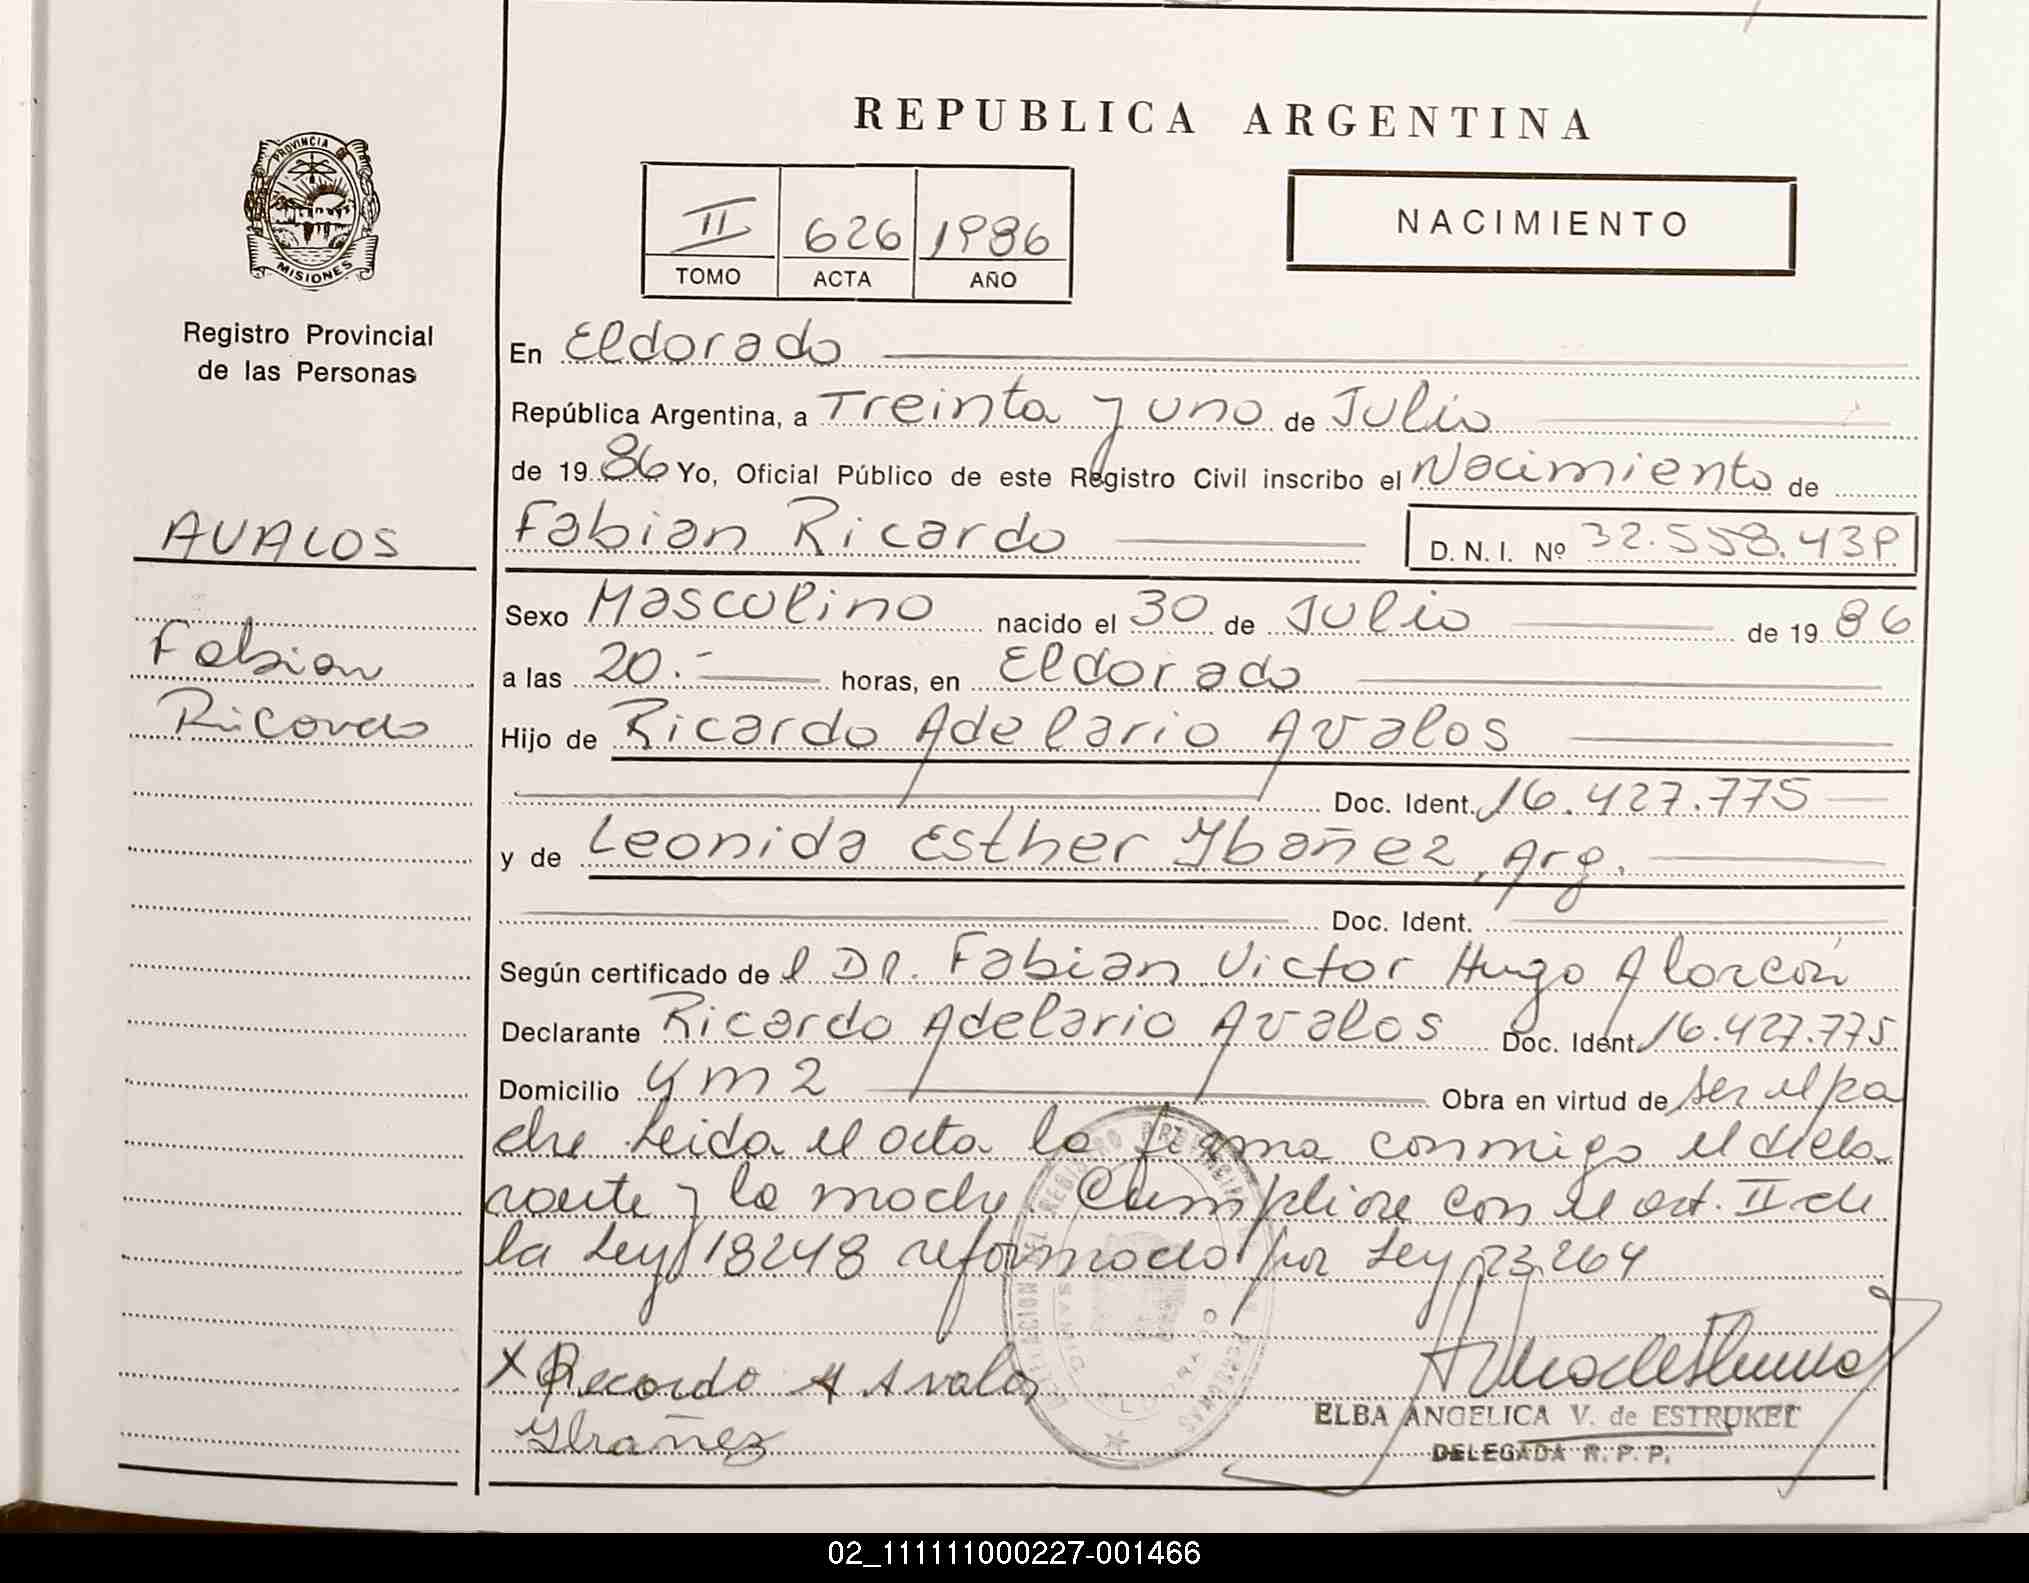 REPUBLICA ARGENTINA
PROVINCIA DE
MISIONES
Registro Provincial
de las Personas
II 626 1986
TOMO ACTA AÑO
NACIMIENTO
En Eldorado
República Argentina, a Treinta y uno de Julio
de 19 86 Yo, Oficial Público de este Registro Civil inscribo el Nacimiento de
AVALOS
Fabian
Ricardo
Fabian Ricardo D. N. I. Nº 32.558.439
Sexo Masculino nacido el 30 de Julio de 19 86
a las 20.- horas, en Eldorado
Hijo de Ricardo Adelario Avalos
Doc. Ident. 16.427.775
y de Leonida Esther Ybañez, Arg.
Doc. Ident.
Según certificado de l Dr. Fabian Victor Hugo Alarcón
Declarante Ricardo Adelario Avalos Doc. Ident. 16.427.775
Domicilio Km 2 Obra en virtud de ser el pa
dre Leida el acta la firma conmigo el decla
rante y la madre Cumplise con el art. II de
la Ley 18248 reformado por Ley 23.264
X Recordo A Avalos
Ybañez
ELBA ANGELICA V. de ESTRUKEL
DELEGADA R. P. P.
02_111111000227-001466